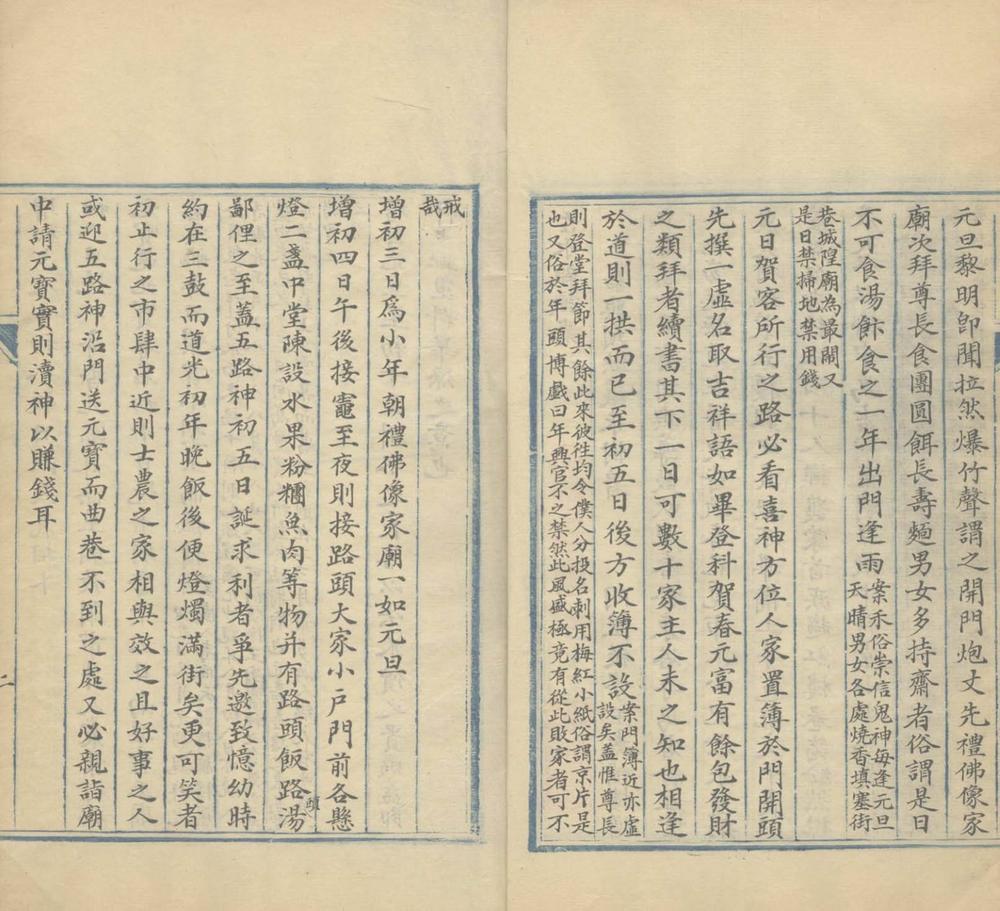 元旦黎明卽聞拉然爆竹聲謂之開門炮丈先禮佛像家
廟次拜尊長食團圓餌長壽麵男女多持齋者俗謂是日
不可食湯飰食之一年出門逢雨
案禾俗崇信鬼神每逢元旦
天晴男女各處燒香填塞街
巷城隍廟為最閙又
是日禁掃地禁用錢
元日賀客所行之路必看喜神方位人家置簿於門開頭
先撰一虛名取吉祥語如畢登科賀春元富有餘包發財
之類拜者續書其下一日可數十家主人未之知也相逢
於道則一拱而已至初五日後方收簿不設
案門簿近亦虛
設矣盖惟尊長
則登堂拜節其餘此來彼往均令僕人分投名刺用梅紅小紙俗謂京片是
也又俗於年頭博戲曰年興官不之禁然此風盛極竟有從此敗家者可不
戒
哉
增初三日爲小年朝禮佛像家廟一如元旦
增初四日午後接竈至夜則接路頭大家小戶門前各懸
燈二盞中堂陳設水果粉糰魚肉等物并有路頭飯路湯
頭
鄙俚之至蓋五路神初五日誕求利者爭先邀致憶幼時
約在三鼓而道光初年晚飯後便燈燭滿街矣更可笑者
初止行之市肆中近則士農之家相與效之且好事之人
或迎五路神沿門送元寶而曲巷不到之處又必親詣廟
中請元寶實則瀆神以賺錢耳
二